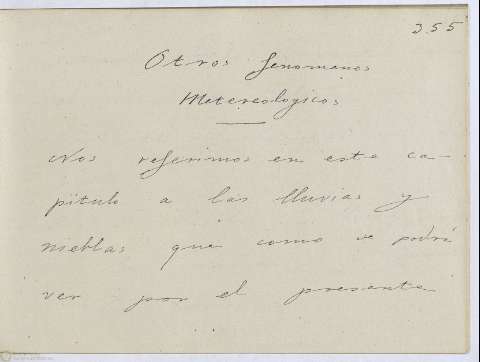 355
Otros fenomenos
Metereologicos
Nos referimos en este ca-
pitulo a las lluvias y
nieblas que como se podrá
ver por el presente